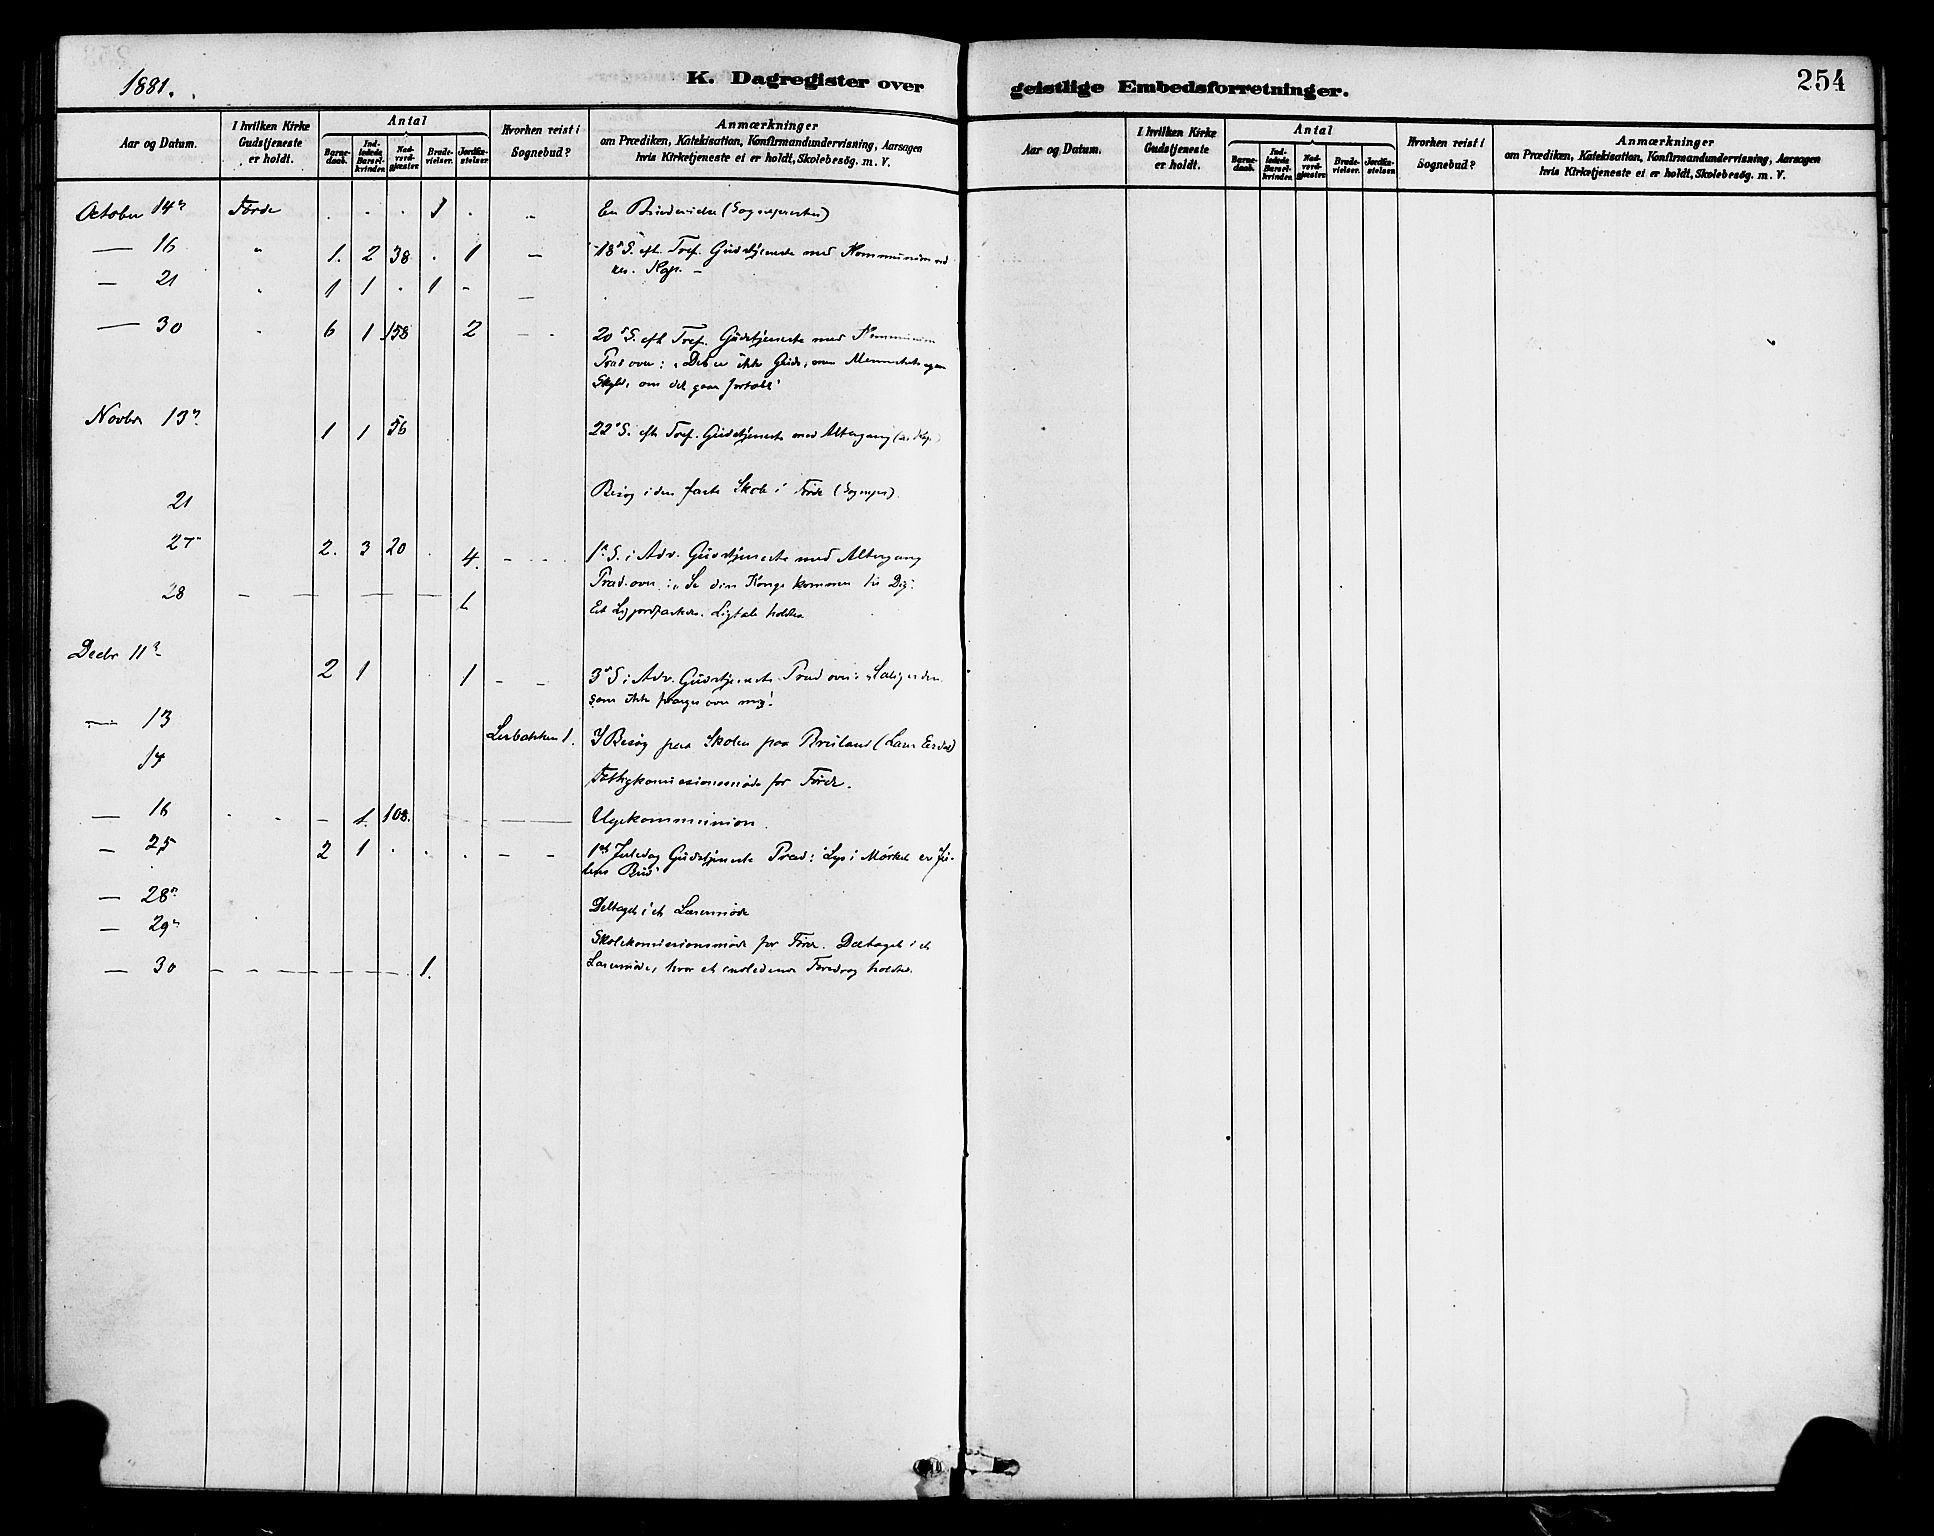 1881.
K. Dagregister over
geistlige Embedsforretninger.
254
Aar og Datum.
I hvilken Kirke Gudstjeneste er holdt.
Antal
Barnedaab.
Indledede Barselkvinder.
Nadverdgjæster.
Brudevielser.
Jordfæstelser
Hvorhen reist i Sognebud?
Anmærkninger
om Prædiken, Katekisation, Konfirmandundervisning, Aarsagen
hvis Kirketjeneste ei er holdt, Skolebesög. m. V.
Aar og Datum.
I hvilken Kirke Gudstjeneste er holdt.
Antal
Barnedaab.
Indledede Barselkvinder.
Nadverdgjæster.
Brudevielser.
Jordfæstelser
Hvorhen reist i Sognebud?
Anmærkninger
om Prædiken, Katekisation, Konfirmandundervisning, Aarsagen
hvis Kirketjeneste ei er holdt, Skolebesög. m. V.
October 14de Førde . . . 1 . " En Brudevielse (Sognepresten)
— 16 " 1. 2 38 . 1 — 18de S. eft. Tref. Gudstjeneste med Kommunion ved
res. Kap. —
— 21 " 1 1 . 1 - —
— 30 " 6 1 158 2 - - 20de S. eft Tref. Gudstjeneste med Kommunion
Præd over: "Det er ikke Guds, men Menneskets egen
Skyld, om det gaar fortabt"
Novbr 13de 1 1 56 22de S. eft Tref. Gudstjeneste med Altergang (res Kap.)
21 Besøg i den faste Skole i Førde (Sognepr).
27 2. 3 20 . 4. - - - 1ste S. i Adv. Gudstjeneste med Altergang
Præd. over: "Se din Konge kommer til Dig"
28 — — — — — 1 Et Lig jordfæstedes. Ligtale holdtes
Decbr 11te 2 1 . 1 - - 3de S i Adv. Gudstjeneste. Præd over: "Salig er den
som ikke forarges over mig"
— 13 Lerbakken 1. Besøg paa Skolen paa Bruland
14 Fattigkomissionsmøde for Førde.
— 16 . . - 1. 108. — — Ugekommunion.
— 25 2 1 . . . - - 1ste Juledag Gudstjeneste Præd: "Lys i Mørket er Ju-
lens Bud"
— 28de Deltaget i et Lærermøde
— 29de Skolekomissionsmøde for Førde. Deltaget i et
Lærermøde, hvor et indledende Foredrag holdtes.
— 30 - - - - - - 1.